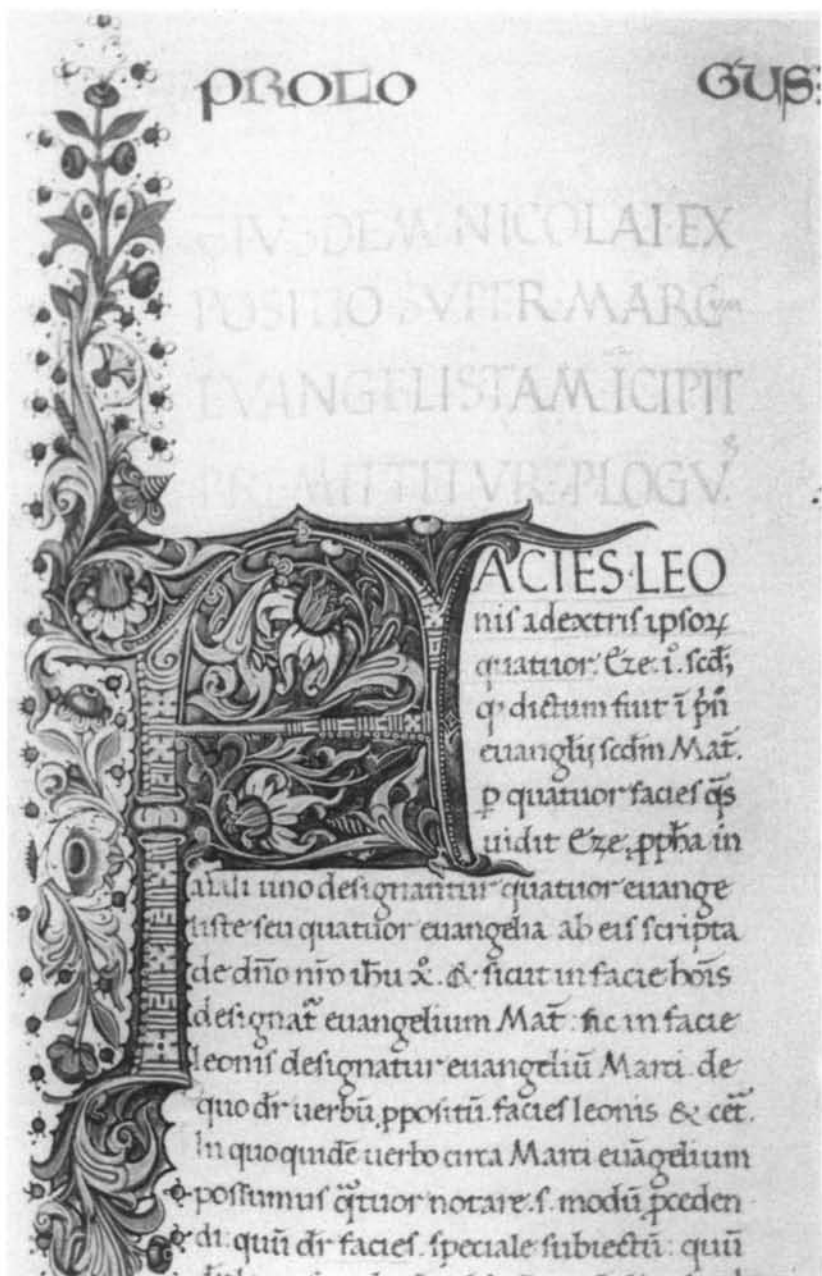 PROLO GUS:
EIVSDEM NICOLAI EX
POSITIO SVPER MARCUM
EVANGELISTAM ĪCIPIT
PREMITTITVR PLOGVS
FACIES·LEO
nis a dextris ipsoꝝ
quatuor. Eze. i͛. scd̄ꝫ
qͥ dictum fuit ī pͥn̄
euangl̄ij scd̄m Mat̄.
ꝑ quatuor facies q̄s
uidit Eze. ꝓph̄a in
aīali uno designantur quatuor euange
liste seu quatuor euangelia ab eis scripta
de dn̄o nr̄o ih̄u x͛. & sicut in facie hoīs
designat᷑ euangelium Mat̄: sic in facie
leonis designatur euangeliū Marci. de
quo dr̄ uerbū ꝓpositū. facies leonis & cet̄.
In quo quidē uerbo circa Marci euāgelium
possumus q̄tuor notare. s. modū ꝓceden
di: quū dr̄ facies. speciale subiectū: quū